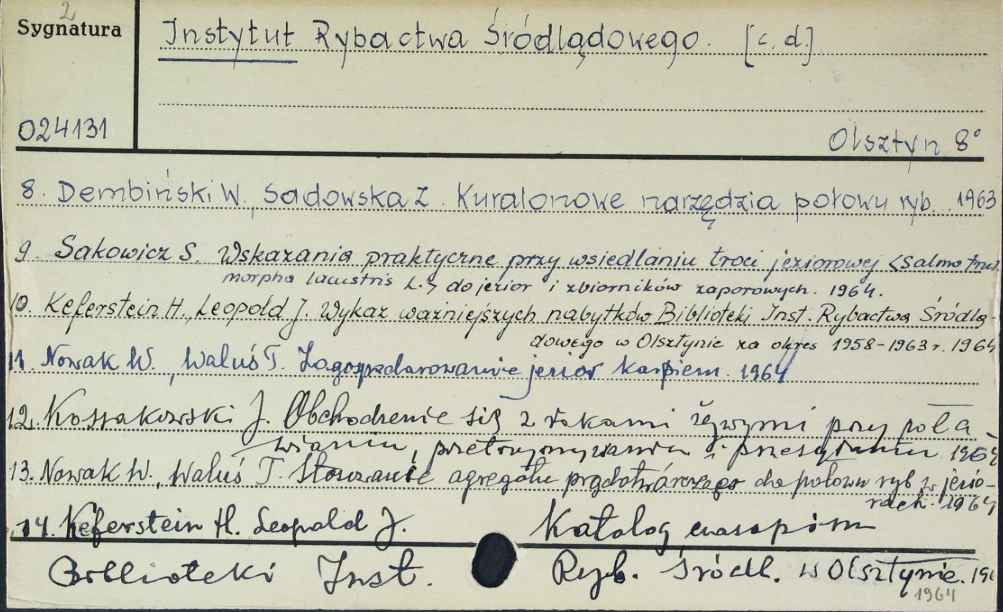 2
Sygnatura
Instytut Rybactwa Śródlądowego. [c.d.]
024131
Olsztyn 8°
8. Dembiński W., Sadowska Z. Kuralonowe narzędzia połowu ryb. 1963
9. Sakowicz S. Wskazania praktyczne przy wsiedlaniu troci jeziorowej <Salmo trut.
morpha lacustris L.> do jezior i zbiorników zaporowych. 1964.
10. Keferstein H., Leopold J. Wykaz ważniejszych nabytków Biblioteki Inst. Rybactwa Śródlą-
dowego w Olsztynie za okres 1958-1963 r. 1964
11. Nowak W., Waluś T. Zagospodarowanie jezior karpiem. 1964
12. Kossakowski J. Obchodzenie się z rakami żywymi przy poła-
wianiu, przetrzymywaniu i przesyłaniu 1964
13. Nowak W., Waluś T. Stosowanie agregatu prądotwórczego do połowu ryb w jezio-
rach. 1964
14. Keferstein H. Leopold J. Katalog czasopism
Biblioteki Inst. Ryb. Śródl. w Olsztynie. 196
1964